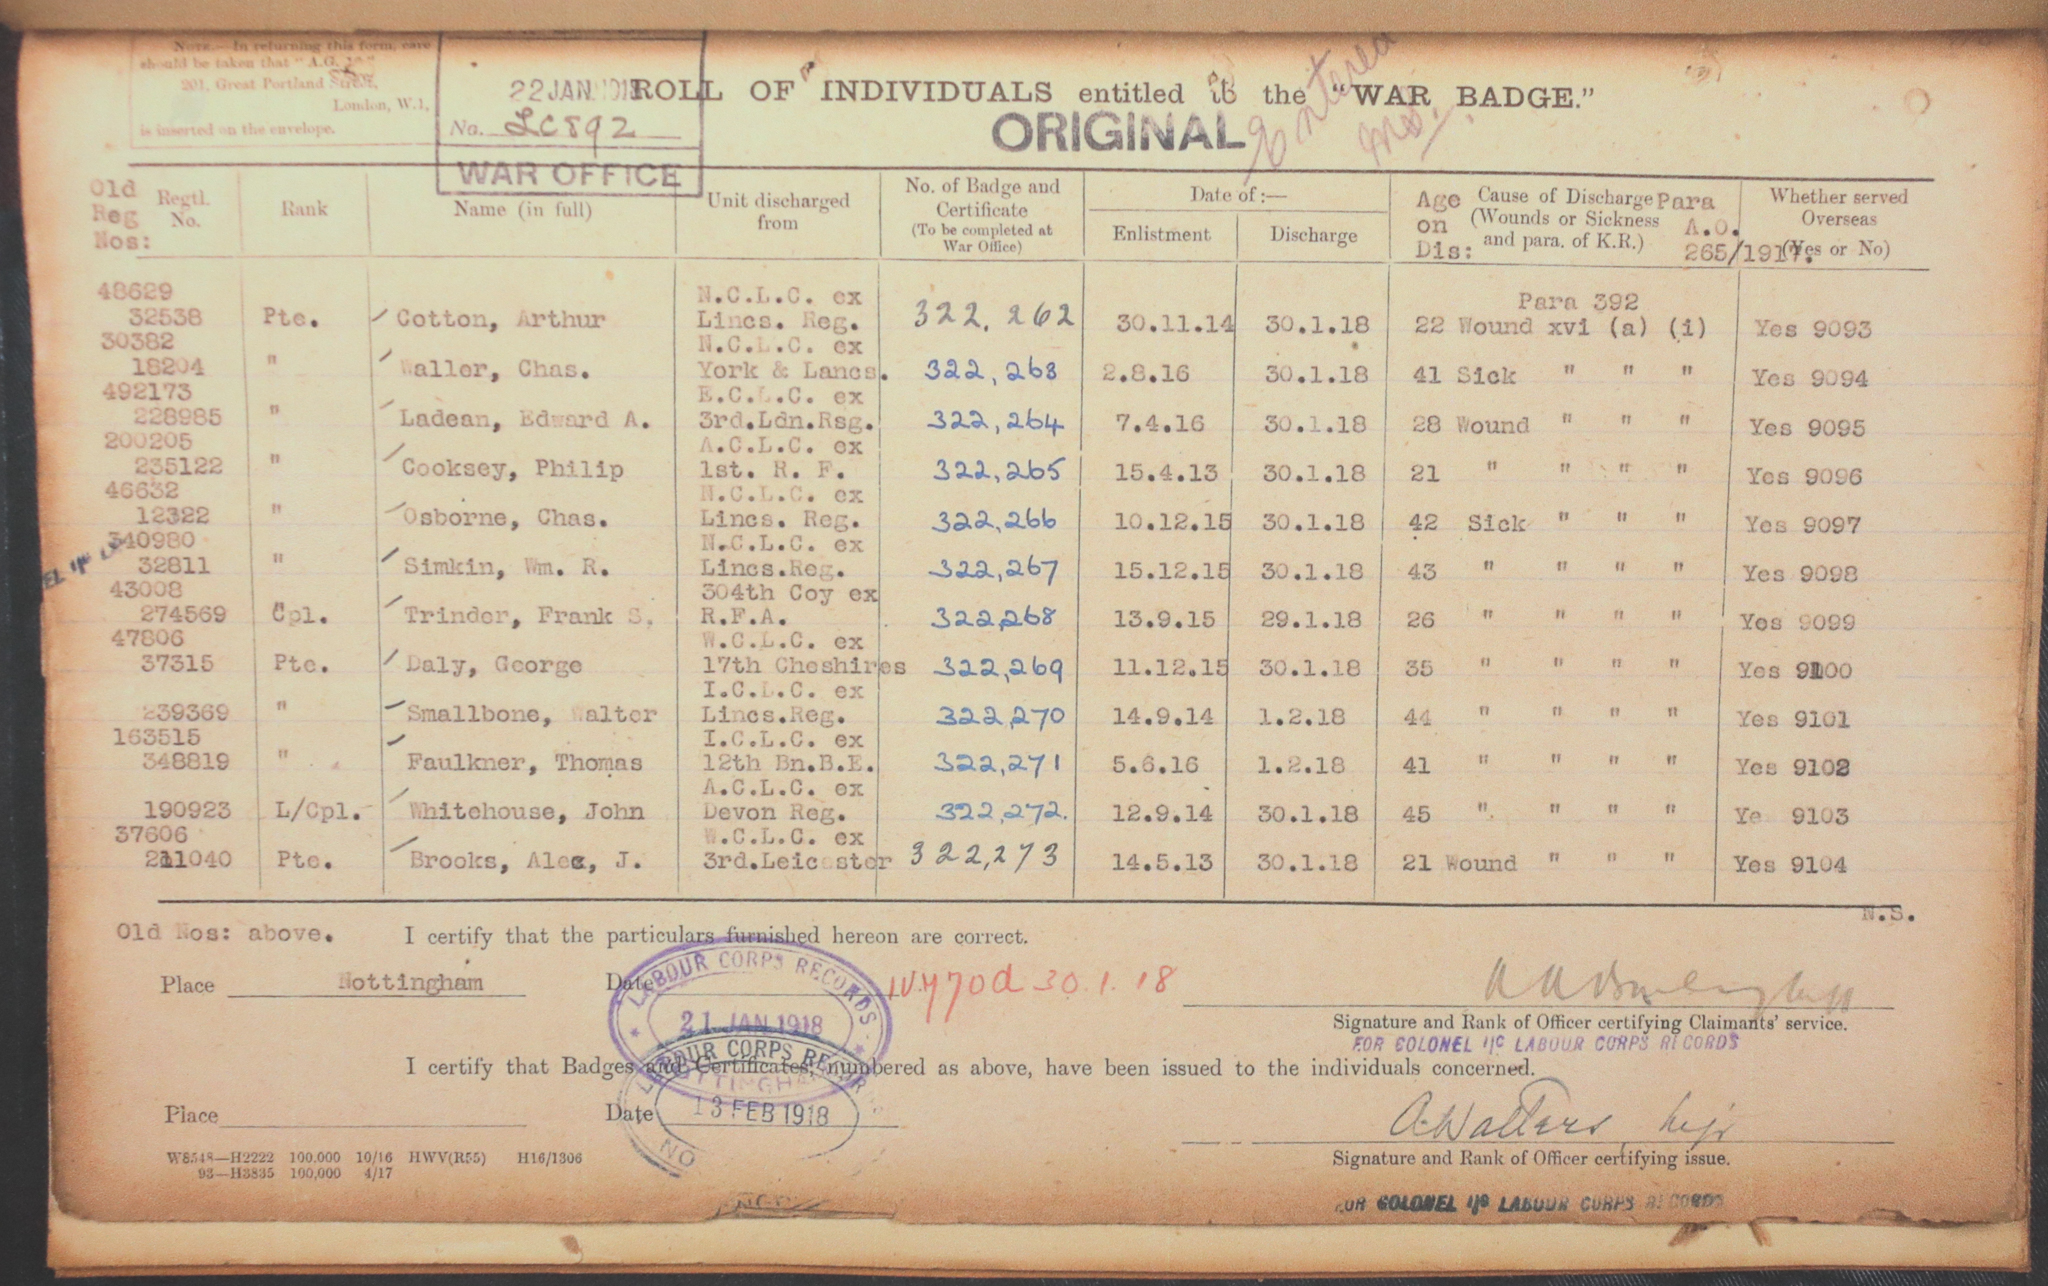 NOTE.—In returning this form, care
should be taken that "A.G.
201, Great Portland Street,
London, W.1,
is inserted on the envelope.
22 JAN 1918
No. LC892
WAR OFFICE
ROLL OF INDIVIDUALS entitled to the "WAR BADGE."
ORIGINAL
Entered
Old Reg Nos: Regtl. No. Rank Name (in full) Unit discharged from No. of Badge and Certificate (To be completed at War Office) Date of:— Enlistment Discharge Age on Dis: Cause of Discharge (Wounds or Sickness and para. of K.R.) Para A.O. 265/1917. Whether served Overseas (Yes or No)
48629 N.C.L.C. ex Para 392
32538 Pte. Cotton, Arthur Lincs. Reg. 322,262 30.11.14 30.1.18 22 Wound xvi (a) (i) Yes 9093
30382 N.C.L.C. ex
18204 " Waller, Chas. York & Lancs. 322,263 2.8.16 30.1.18 41 Sick " " " Yes 9094
492173 E.C.L.C. ex
228985 " Ladean, Edward A. 3rd.Ldn.Rsg. 322,264 7.4.16 30.1.18 28 Wound " " " Yes 9095
200205 A.C.L.C. ex
235122 " Cooksey, Philip 1st. R. F. 322,265 15.4.13 30.1.18 21 " " " " Yes 9096
46632 N.C.L.C. ex
12322 " Osborne, Chas. Lincs. Reg. 322,266 10.12.15 30.1.18 42 Sick " " " Yes 9097
340980 N.C.L.C. ex
32811 " Simkin, Wm. R. Lincs.Reg. 322,267 15.12.15 30.1.18 43 " " " " Yes 9098
43008 304th Coy ex
274569 Cpl. Trinder, Frank S. R.F.A. 322,268 13.9.15 29.1.18 26 " " " " Yes 9099
47806 W.C.L.C. ex
37315 Pte. Daly, George 17th Cheshires 322,269 11.12.15 30.1.18 35 " " " " Yes 9100
I.C.L.C. ex
239369 " Smallbone, Walter Lincs.Reg. 322,270 14.9.14 1.2.18 44 " " " " Yes 9101
163515 I.C.L.C. ex
348819 " Faulkner, Thomas 12th Bn.B.E. 322,271 5.6.16 1.2.18 41 " " " " Yes 9102
A.C.L.C. ex
190923 L/Cpl. Whitehouse, John Devon Reg. 322,272. 12.9.14 30.1.18 45 " " " " Ye 9103
37606 W.C.L.C. ex
211040 Pte. Brooks, Alex, J. 3rd.Leicester 322,273 14.5.13 30.1.18 21 Wound " " " Yes 9104
N.S.
Old Nos: above. I certify that the particulars furnished hereon are correct.
Place Nottingham Date 30.1.18
LABOUR CORPS RECORDS
21 JAN 1918
NOTTINGHAM
Signature and Rank of Officer certifying Claimants' service.
FOR COLONEL I/C LABOUR CORPS RECORDS
I certify that Badges and Certificates, numbered as above, have been issued to the individuals concerned.
LABOUR CORPS RECORDS
13 FEB 1918
NO
Place Date A Walters
Signature and Rank of Officer certifying issue.
W8548—H2222 100,000 10/16 HWV(R55) H16/1306
93—H3835 100,000 4/17
FOR COLONEL I/C LABOUR CORPS RECORDS